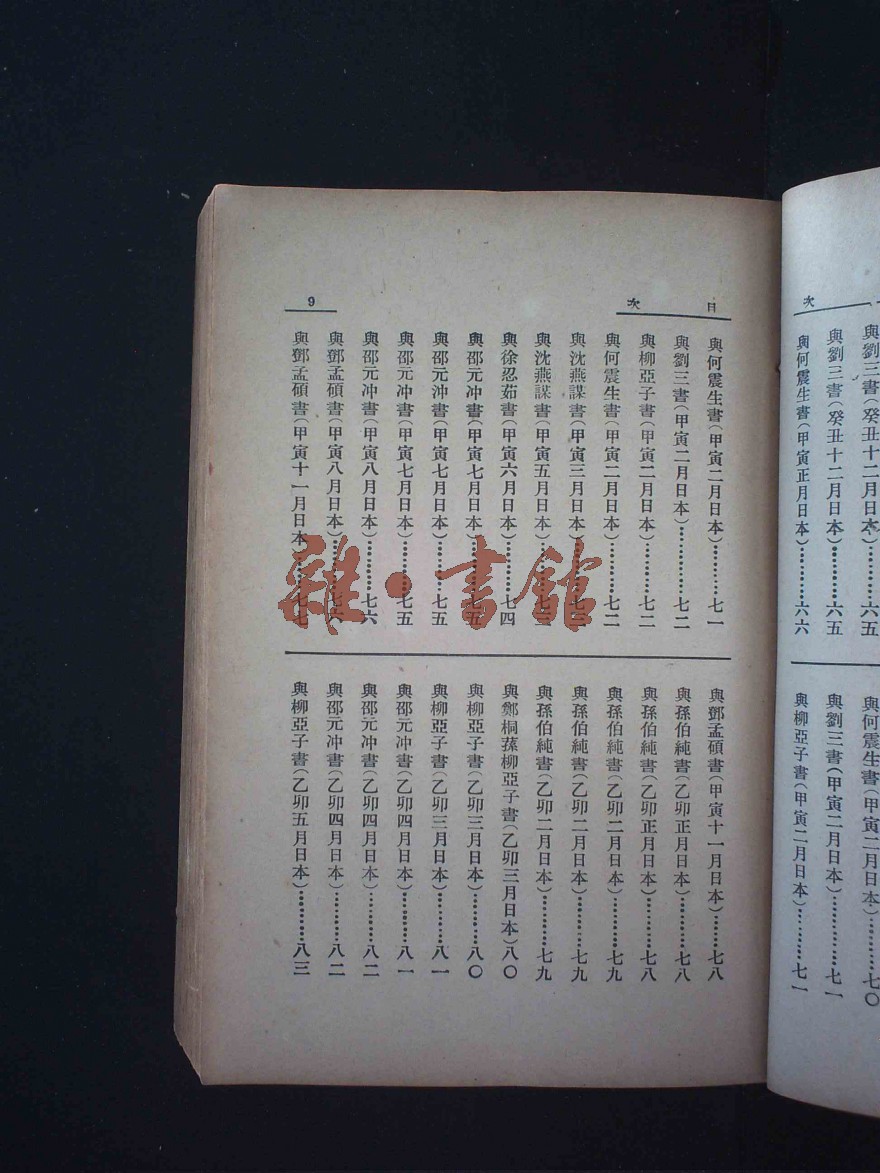 次
與劉三書(癸丑十二月日本)…………六五
與劉三書(癸丑十二月日本)…………六五
與何震生書(甲寅正月日本)…………六六
與何震生書(甲寅二月日本)…………七〇
與劉三書(甲寅二月日本)…………七一
與柳亞子書(甲寅二月日本)…………七一
目次
9
與何震生書(甲寅二月日本)…………七一
與劉三書(甲寅二月日本)…………七二
與柳亞子書(甲寅二月日本)…………七二
與何震生書(甲寅二月日本)…………七二
與沈燕謀書(甲寅三月日本)…………七三
與沈燕謀書(甲寅五月日本)…………七三
與徐忍茹書(甲寅六月日本)…………七四
與邵元冲書(甲寅七月日本)…………七五
與邵元冲書(甲寅七月日本)…………七五
與邵元冲書(甲寅七月日本)…………七五
與邵元冲書(甲寅八月日本)…………七六
與鄧孟碩書(甲寅八月日本)…………七六
與鄧孟碩書(甲寅十一月日本)…………七七
與鄧孟碩書(甲寅十一月日本)…………七八
與孫伯純書(乙卯正月日本)…………七八
與孫伯純書(乙卯正月日本)…………七八
與孫伯純書(乙卯二月日本)…………七九
與孫伯純書(乙卯二月日本)…………七九
與孫伯純書(乙卯二月日本)…………七九
與鄭桐蓀柳亞子書(乙卯三月日本)八〇
與柳亞子書(乙卯三月日本)…………八〇
與柳亞子書(乙卯三月日本)…………八一
與邵元冲書(乙卯四月日本)…………八一
與邵元冲書(乙卯四月日本)…………八二
與邵元冲書(乙卯四月日本)…………八二
與柳亞子書(乙卯五月日本)…………八三
雜·書館